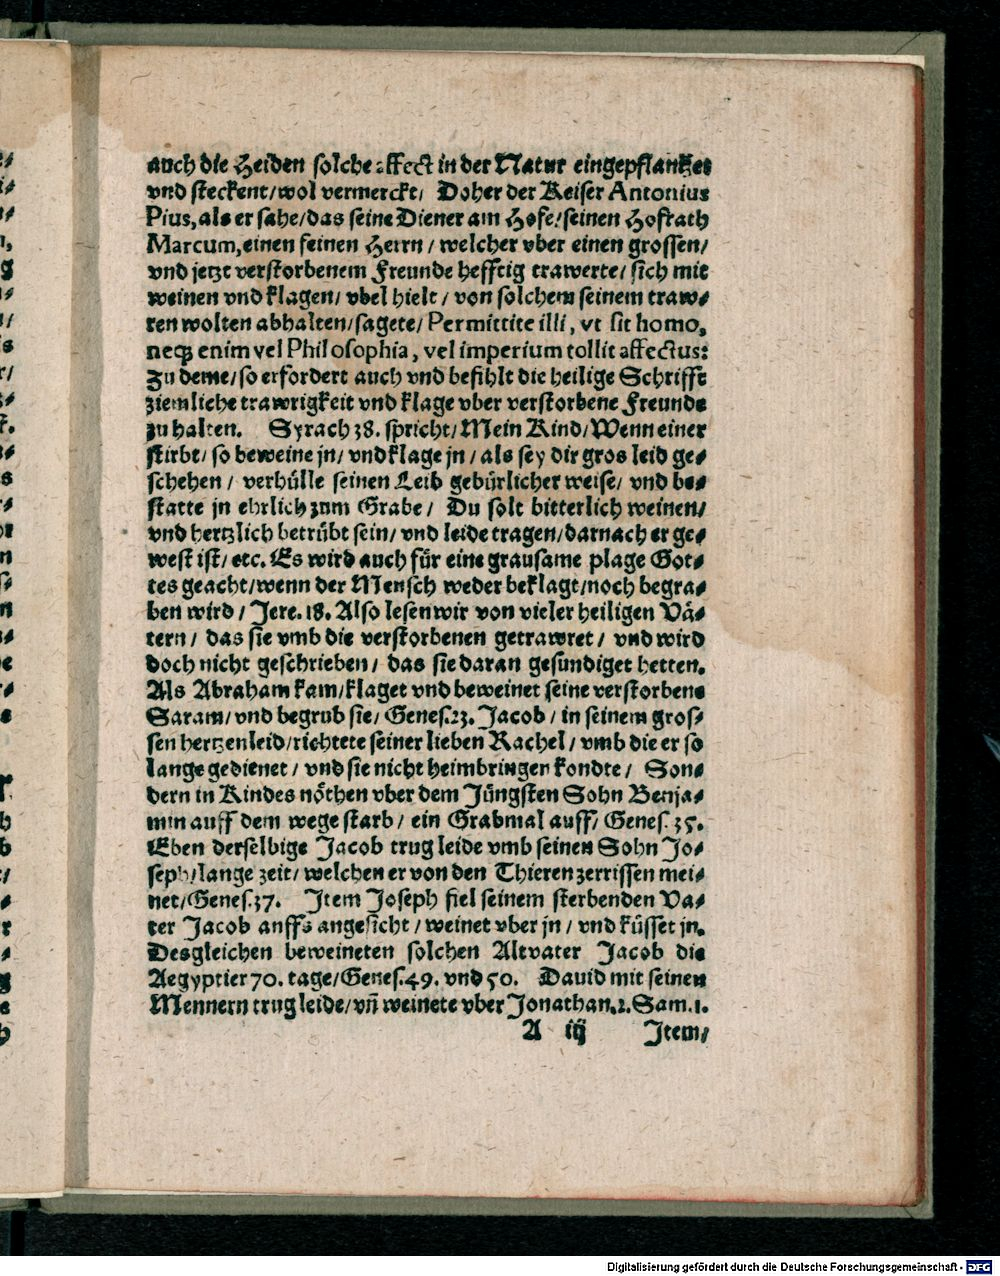 auch die Heiden solche affect in der Natur eingepflantzet
vnd steckent/wol vermerckt/ Doher der Keiser Antonius
Pius,als er sahe/das seine Diener am Hofe/seinen Hofrath
Marcum,einen feinen Herrn/welcher vber einen grossen/
vnd jetzt verstorbenem Freunde hefftig trawerte/sich mit
weinen vnd klagen/vbel hielt/von solchem seinem traw⸗
ren wolten abhalten/sagete/Permittite illi, vt sit homo,
neqꝫ enim vel Philosophia, vel imperium tollit affectus:
Zu deme/so erfordert auch vnd befihlt die heilige Schrifft
ziemliche trawrigkeit vnd klage vber verstorbene Freunde
zu halten. Syrach 38. spricht/Mein Kind/Wenn einer
stirbt/so beweine jn/vnd klage jn/als sey dir gros leid ge⸗
schehen/verhülle seinen Leib gebürlicher weise/vnd be⸗
statte jn ehrlich zum Grabe/Du solt bitterlich weinen/
vnd hertzlich betrübt sein/vnd leide tragen/darnach er ge⸗
west ist/etc. Es wird auch für eine grausame plage Got⸗
tes geacht/wenn der Mensch weder beklagt/noch begra⸗
ben wird/Jere. 18. Also lesen wir von vieler heiligen Vä⸗
tern/das sie vmb die verstorbenen getrawret/vnd wird
doch nicht geschrieben/das sie daran gesundiget hetten.
Als Abraham kam/klaget vnd beweinet seine verstorbene
Saram/vnd begrub sie/Genes.23. Jacob/in seinem gros⸗
sen hertzenleid/richtete seiner lieben Rachel/vmb die er so
lange gedienet/vnd sie nicht heimbringen kondte/Son⸗
dern in Kindes nöthen vber dem Jüngsten Sohn Benja⸗
min auff dem wege starb/ein Grabmal auff/Genes. 35.
Eben derselbige Jacob trug leide vmb seinen Sohn Jo⸗
seph/lange zeit/welchen er von den Thieren zerrissen mei⸗
net/Genes.37. Item Joseph fiel seinem sterbenden Va⸗
ter Jacob auffs angesicht/weinet vber jn/vnd küsset jn.
Desgleichen beweineten solchen Altvater Jacob die
Aegyptier 70. tage/Genes.49. vnd 50. Dauid mit seinen
Mennern trug leide/vñ weinete vber Jonathan.2.Sam.1.
A iij Item/
Digitalisierung gefördert durch die Deutsche Forschungsgemeinschaft - DFG